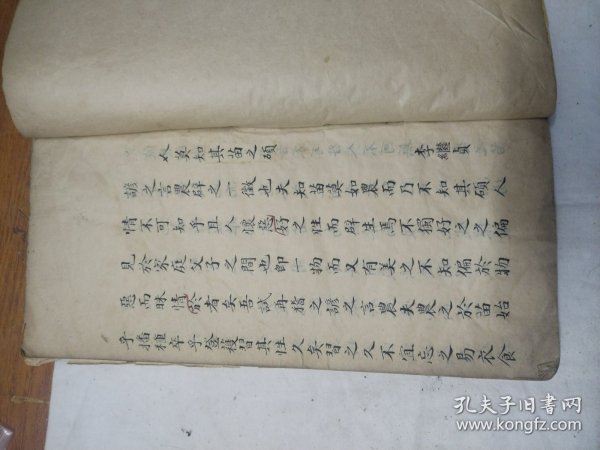 莫知其苗之碩 李繼貞
諺之言農辟之一徵也夫知苗莫如農而乃不知其碩人
情不可知乎且人懷惡好之性而辟生焉不獨好之之偏
見於家庭父子之間也即一物而又有美之不知偏於物
惡而昧情於者矣吾試再指之諺之言農夫農之於苗始
乎播種卒乎登穫習其性久矣習之久不宜忘之易衣食
孔夫子旧书网
www.kongfz.com